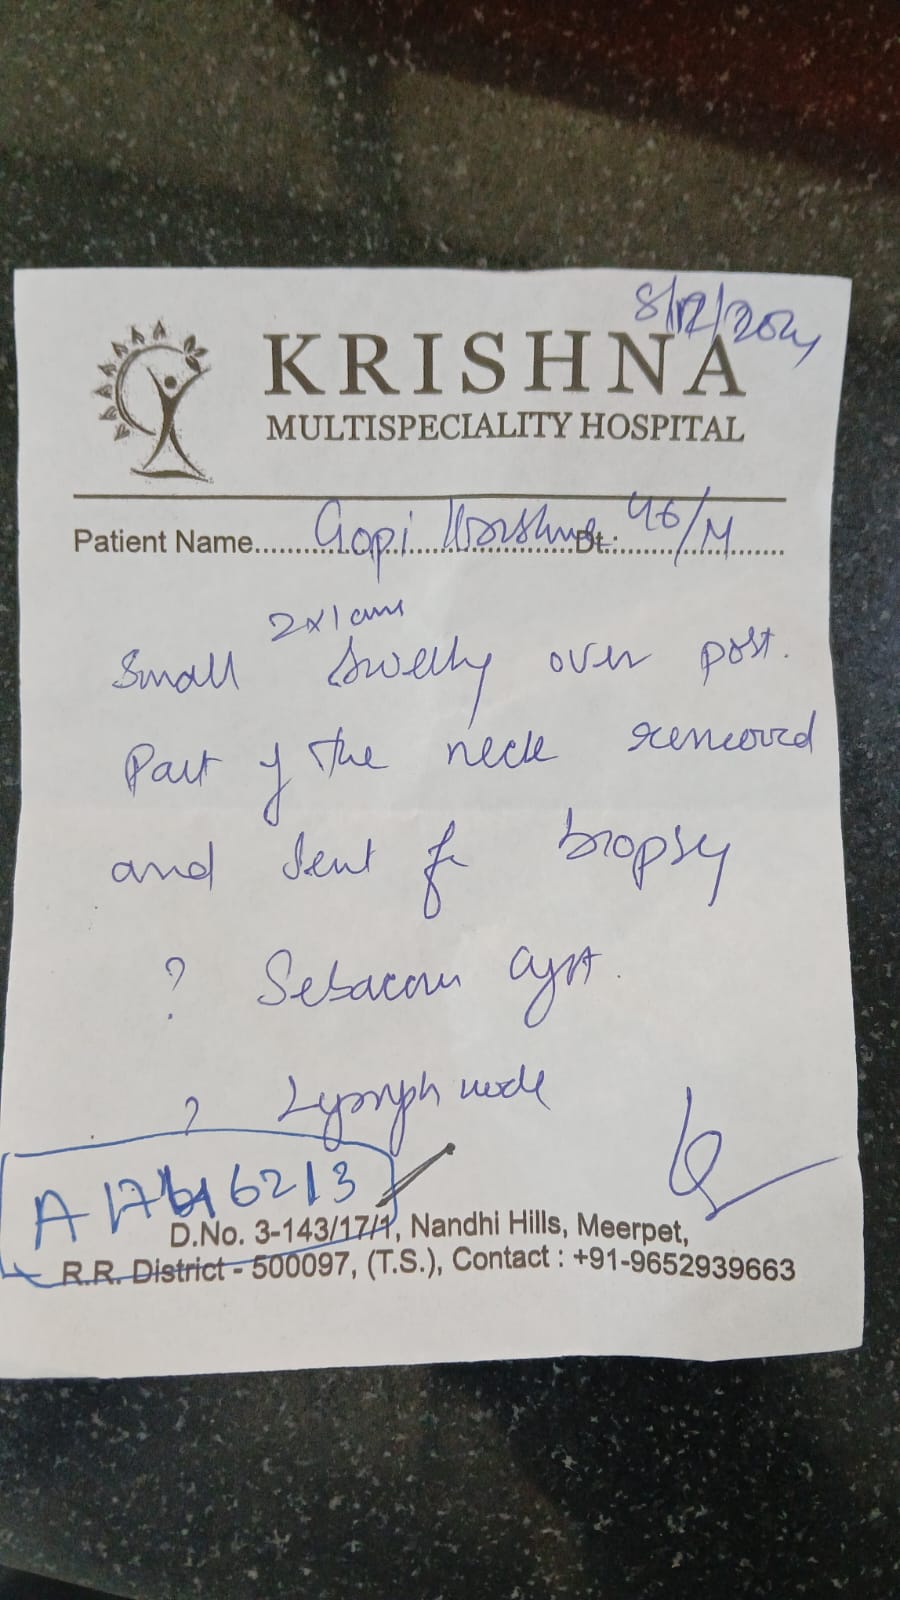 8/12/2024
KRISHNA
MULTISPECIALITY HOSPITAL
Patient Name.......Gopi Krishna Dt.: 46/M
2x1 cms
Small Swelling over post.
Part of the neck removed
and sent for biopsy
? Sebaceous cyst.
? Lymph node
A 6213
D.No. 3-143/17/1, Nandhi Hills, Meerpet,
R.R. District - 500097, (T.S.), Contact : +91-9652939663